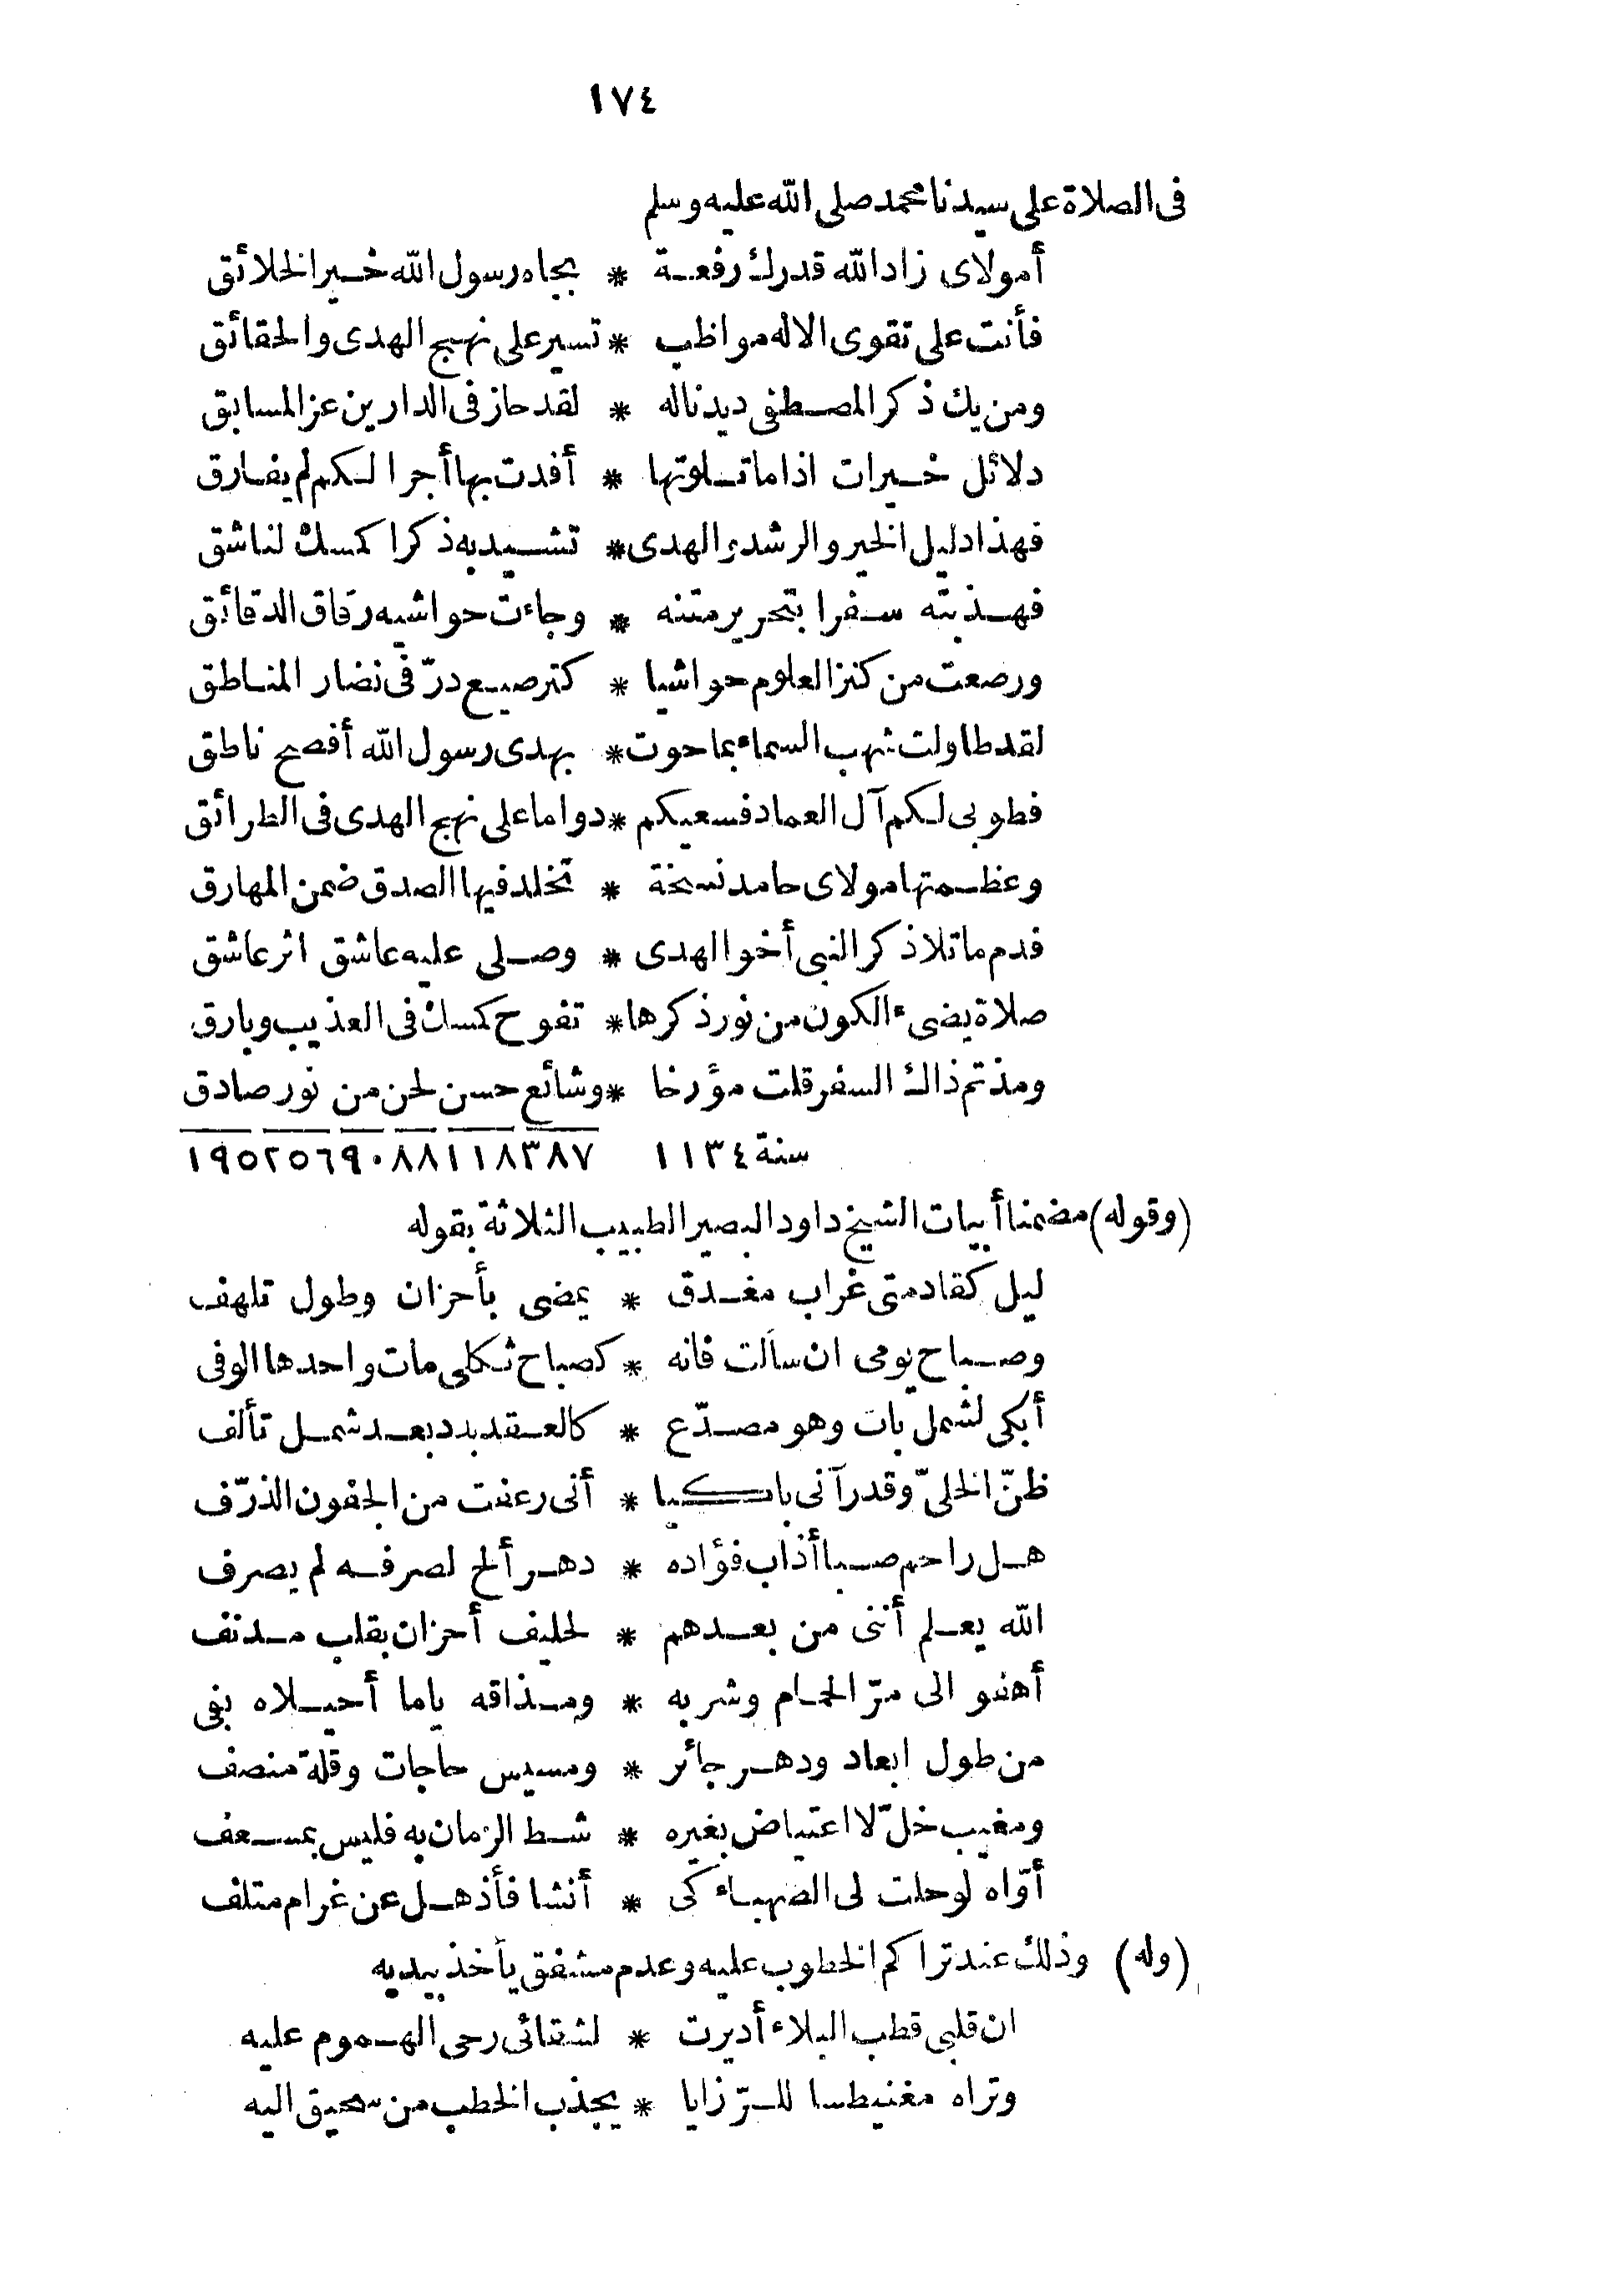 ١٧٤
فى الصلاة على سيدنا محمد صلى الله عليه وسلم
أمولاى زاد الله قدرك رفعة * بجاه رسول الله خير الخلائق
فأنت على تقوى الاله مواظب * تسير على نهج الهدى والحقائق
ومن يك ذكر المصطفى ديدناله * لقد حاز فى الدارين عز المسابق
دلائل خيرات اذا ما تلوتها * أفدت بها أجرا لكم لم يفارق
فهذا دليل الخير والرشد والهدى * تشيد به ذكرا كمسك لناشق
فهذبته سفرا بتحرير متنه * وجاءت حواشيه رقاق الدقائق
ورصعت من كنز العلوم حواشيا * كترصيع درّ فى نضار المناطق
لقد طاولت شهب السماء بما حوت * بهدى رسول الله أفصح ناطق
فطوبى لكم آل العماد فسعيكم * دواما على نهج الهدى فى الطرائق
وعظمتها مولاى حامد نسخة * تخلد فيها الصدق ضمن المهارق
فدم ما تلا ذكر النبى أخو الهدى * وصلى عليه عاشق اثر عاشق
صلاة يضىء الكون من نور ذكرها * تفوح كمسك فى العذيب وبارق
ومذ تم ذاك السفر قلت مؤرخا * وشائع حسن لحن من نور صادق
سنة ١١٣٤ ٣٨٧ ١١٨ ٨٨ ٩٠ ٢٥٦ ١٩٥
(وقوله) مضمنا أبيات الشيخ داود البصير الطبيب الثلاثة بقوله
ليل كقادمتى غراب مغدق * يمضى بأحزان وطول تلهف
وصباح يومى ان سألت فانه * كصباح ثكلى مات واحدها الوفى
أبكى لشمل بات وهو مصدّع * كالعقد بدد بعد شمل تألف
ظنّ الخلىّ وقد رآنى باكيا * أنى رعفت من الجفون الذرّف
هل راحم صبا أذاب فؤاده * دهر ألح لصرفه لم يصرف
الله يعلم أننى من بعدهم * لحليف أحزان بقلب مدنف
أهفو الى مرّ الحمام وشربه * ومذاقه ياما أحيلاه بفى
من طول ابعاد ودهر جائر * ومسيس حاجات وقلة منصف
ومغيب خلّ لا اعتياض بغيره * شط الزمان به فليس بمسعف
أوّاه لو حلت لى الصهباء كى * أنشا فأذهل عن غرام متلف
(وله) وذلك عند تراكم الخطوب عليه وعدم مشفق يأخذ بيديه
ان قلبى قطب البلاء أديرت * لشقائى رحى الهموم عليه
وتراه مغنيطسا للرّزايا * يجذب الخطب من سحيق اليه